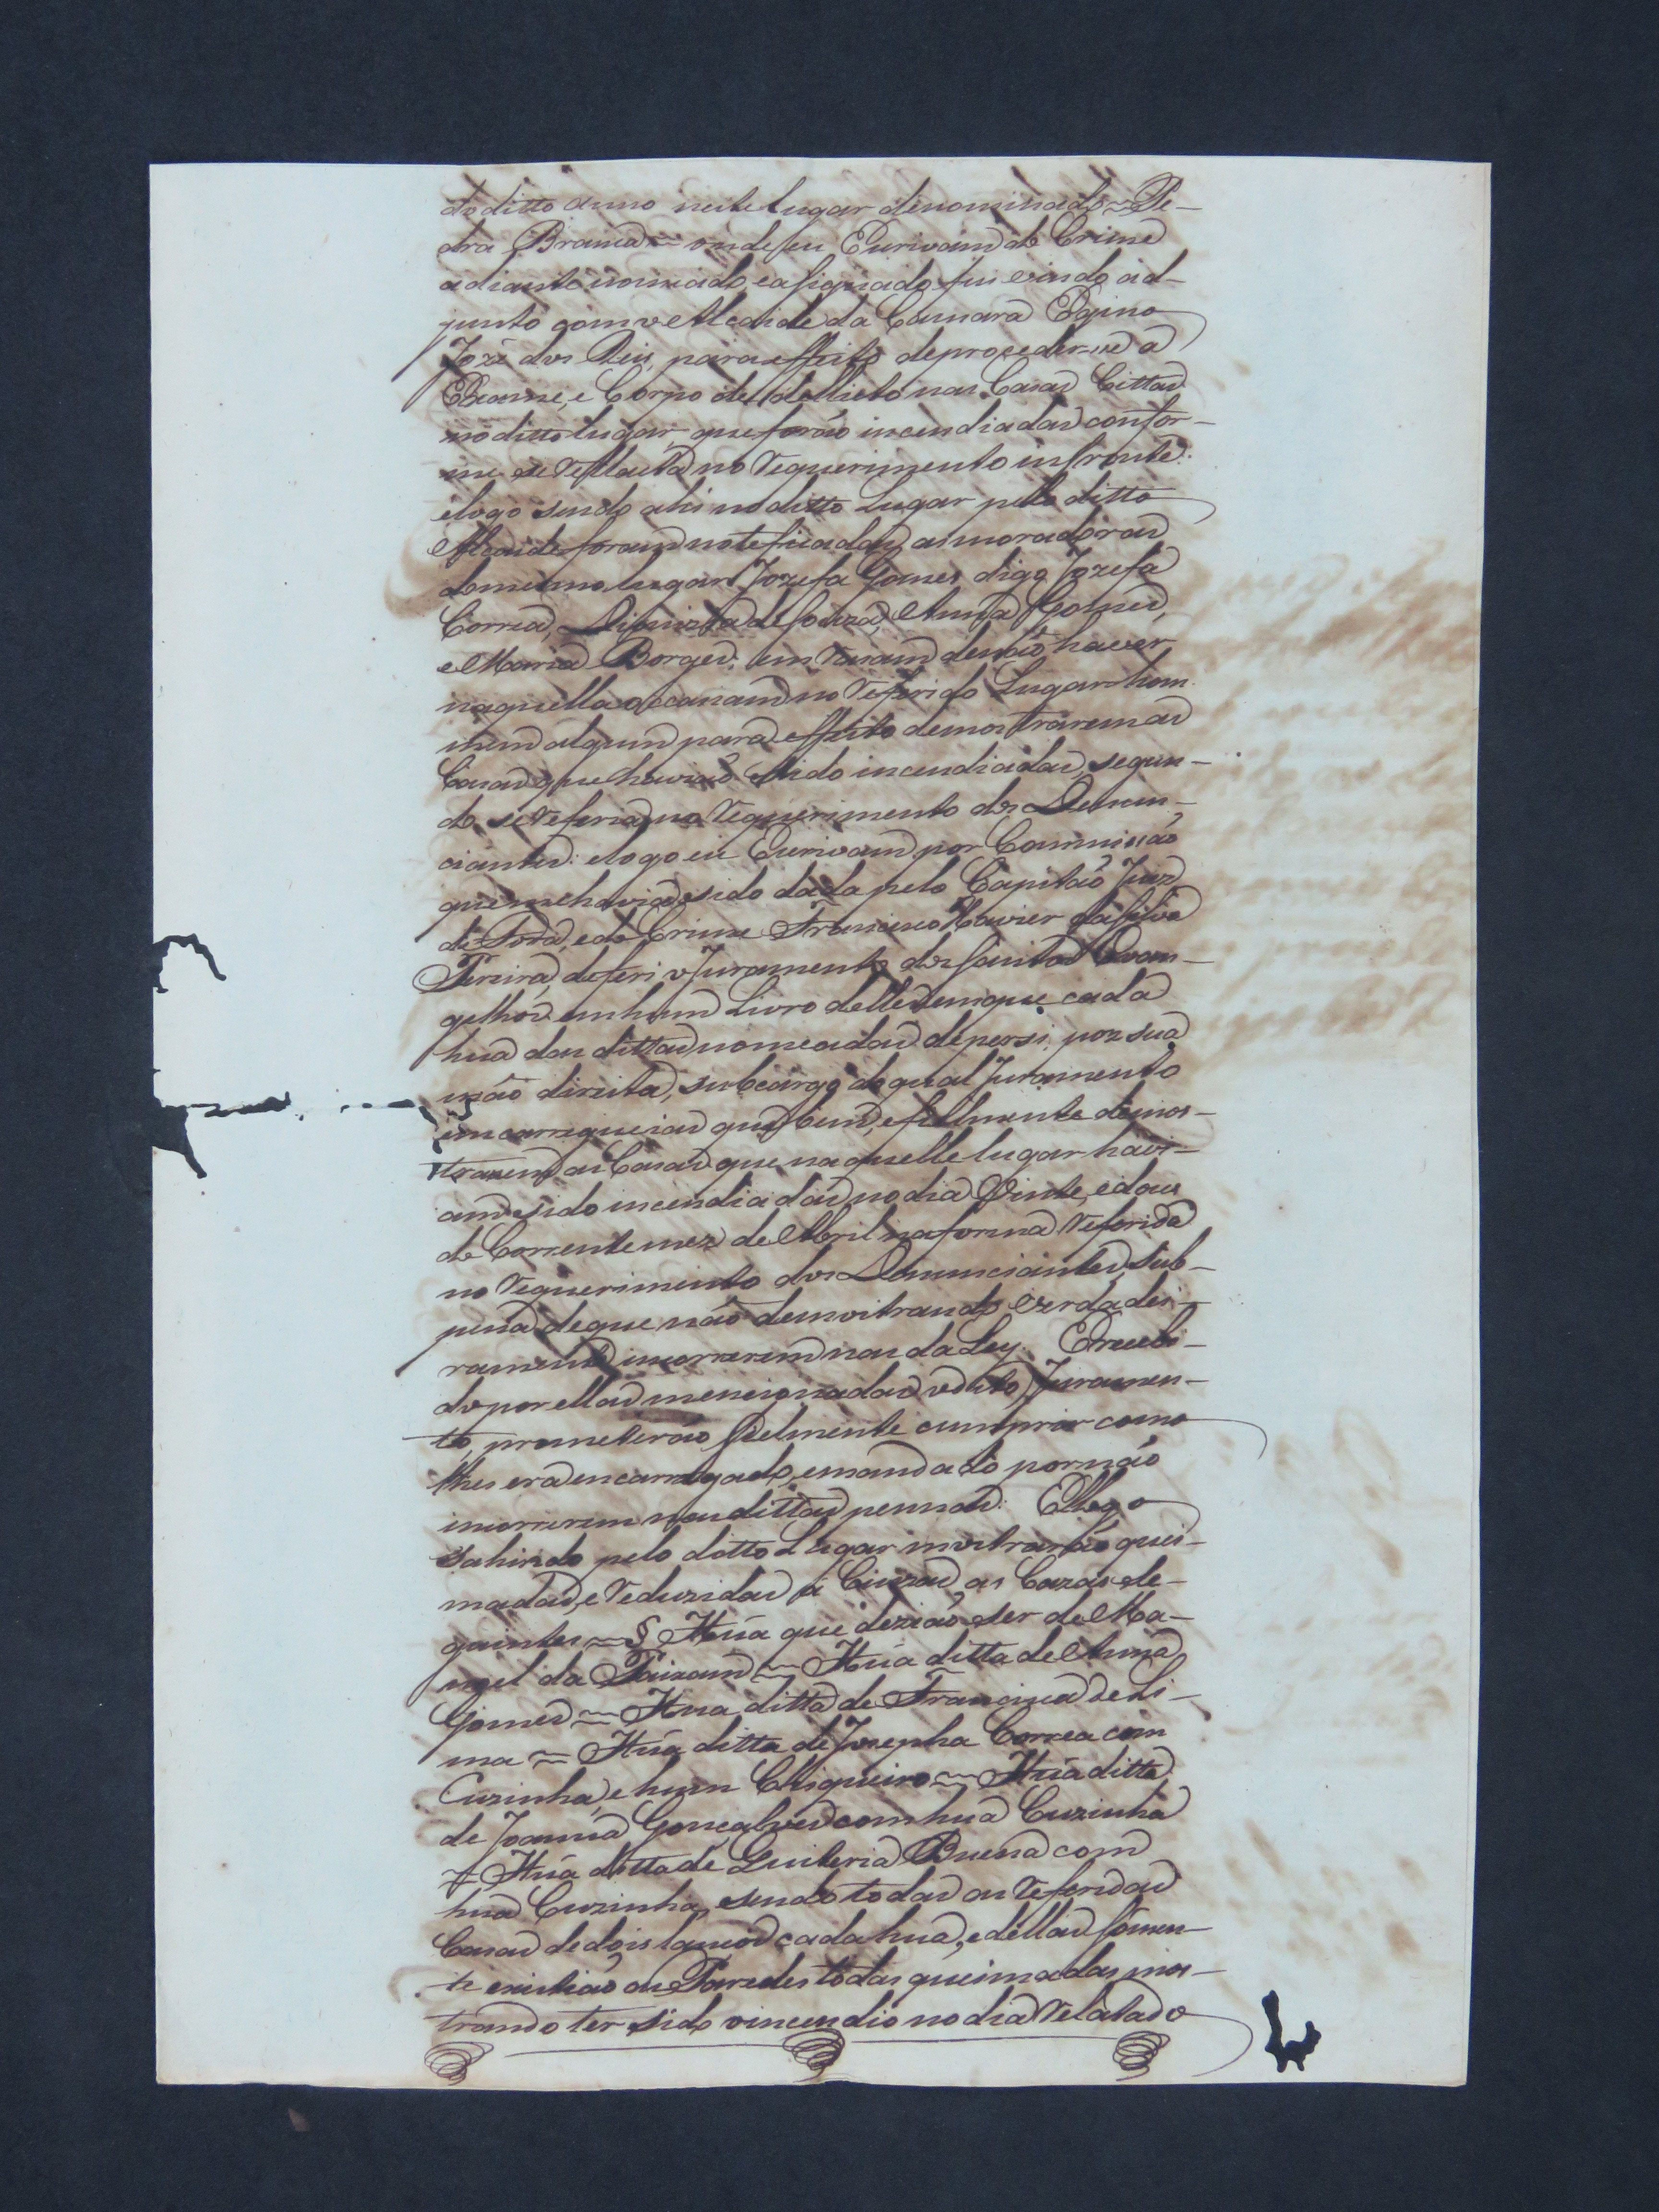 do ditto anno neste lugar denominado = Pe-
dra Branca = onde eu Escrivam do Crime
adiante nomeado, e asignado fui vindo ad-
junto com o Alcaide da Camara Egino
Jozé dos Reis, para effeito de proceder-se a
Exame, e Corpo de dellicto nas Casas Cittas
no ditto lugar, que forão incendiadas confor-
me se rellacta no requerimento infronte:
e logo sendo ahi no ditto Lugar pello ditto
Alcaide foram noteficadas as moradoras
do mesmo lugar Jozefa Gomes digo Jozefa
Correa, Dionizia de Souza, Anna Gomes,
e Maria Borges, em rasam de não haver
naquella occasiam no referido Lugar hom
mem algum para effeito demostrarem as
Casas que havião sido incendiadas, segun-
do se referia no requerimento dos Denun-
ciantes: e logo eu Escrivam por Commissão
que me havia sido dada pelo Capitão Juiz
de Fora, e do Crime Francisco Xavier da Silva
Pereira, deferi o Juramento dos Santos Evan-
gelhos em hum Livro delles em que cada
hua das dittas nomeadas de persi poz sua
mão direita, subcargo do qual Juramento
emcarreguei as que bem, e fielmente demos-
trasem as Casas que naquelle lugar havi-
am sido incendiadas no dia Vinte, e dous
do Corrente mez de Abril na forma referida
no requerimento dos Denunciantes, sub-
pena de que não demostrando verdadei-
ramente incorrerem nas da Ley. E recebi-
do por ellas mencionadas o ditto Juramen-
to, prometerão fielmente cumprir como
lhes era encarregado, e mandado por não
incorrerem nas dittas pennas: E logo
sahindo pelo ditto Lugar mostrarão quei-
madas, e reduzidas a Cinzas as Cazas se-
guintes = § Hũa que dizião ser de Ma-
noel da Paixam = Hũa ditta de Anna
Gomes = Hua ditta de Francisca de Li-
ma = Hũa ditta de Josepha Correa com
Cuzinha, e hum Chiqueiro = Hũa ditta
de Joanna Gonçalves com hua Cuzinha
= Hũa ditta de Quiteria Buena com
hua Cuzinha, sendo todas as referidas
Casas de dois lanços cada hua, e dellas somen-
te existião as Paredes todas queimadas, mos-
trando ter sido o incendio no dia relatado